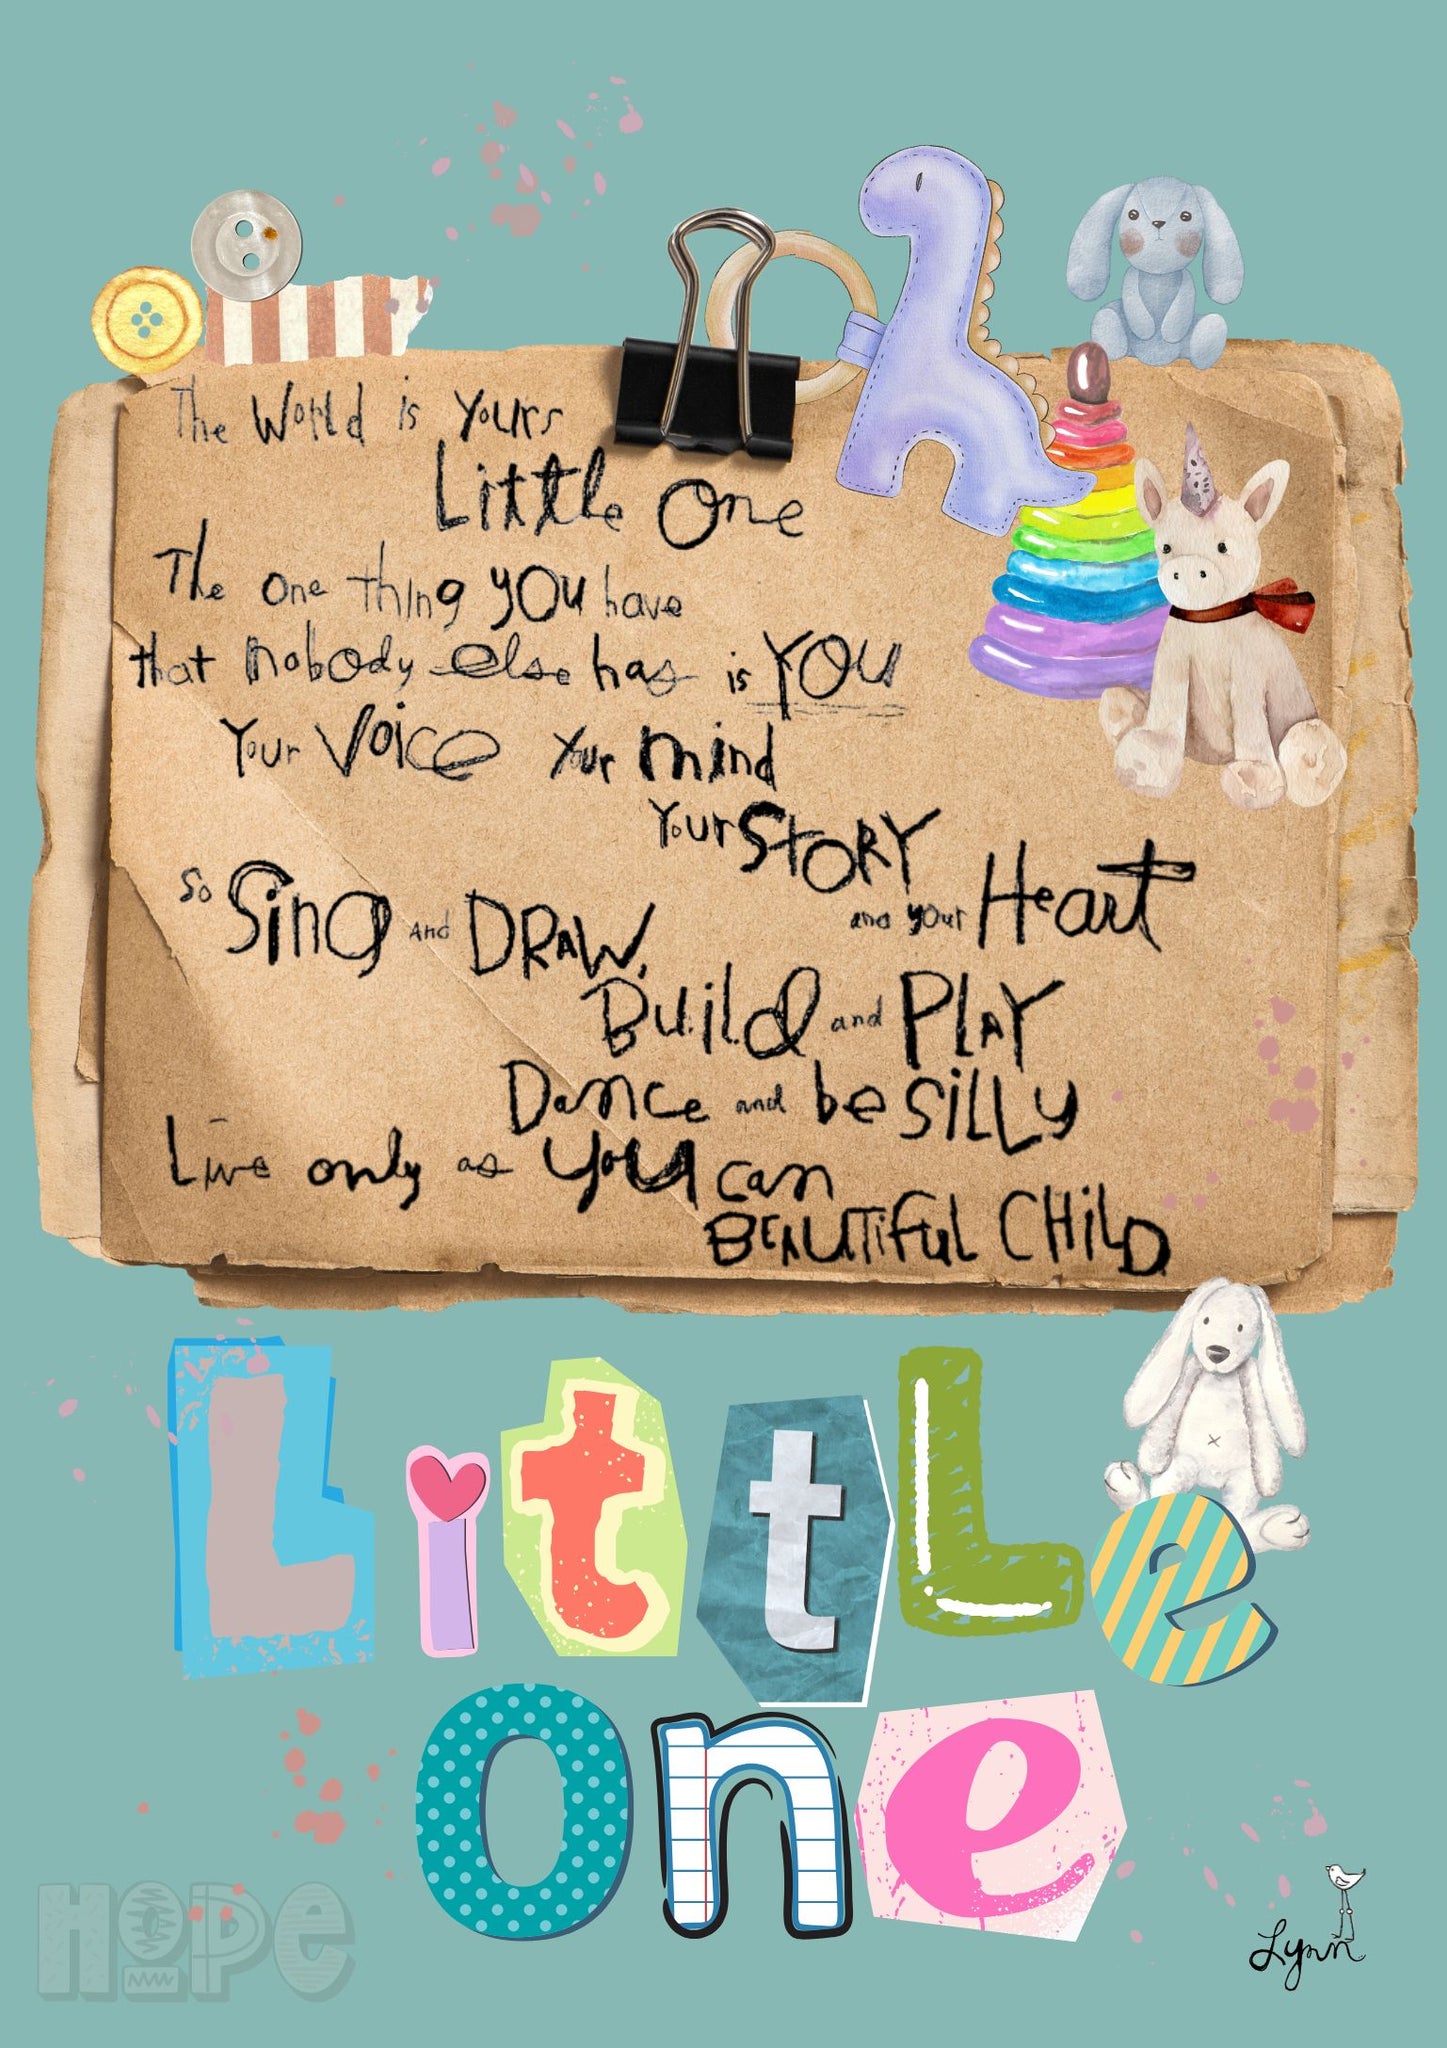 The World is Yours
Little One
The one thing you have
that nobody else has is YOU
Your Voice Your mind
Your STORY
and your Heart
So Sing And DRAW,
Build and PLAY
Dance and be SILLY
Live only as you can
BEAUTIFUL CHILD
LittLe
One
HOPE
Lynn